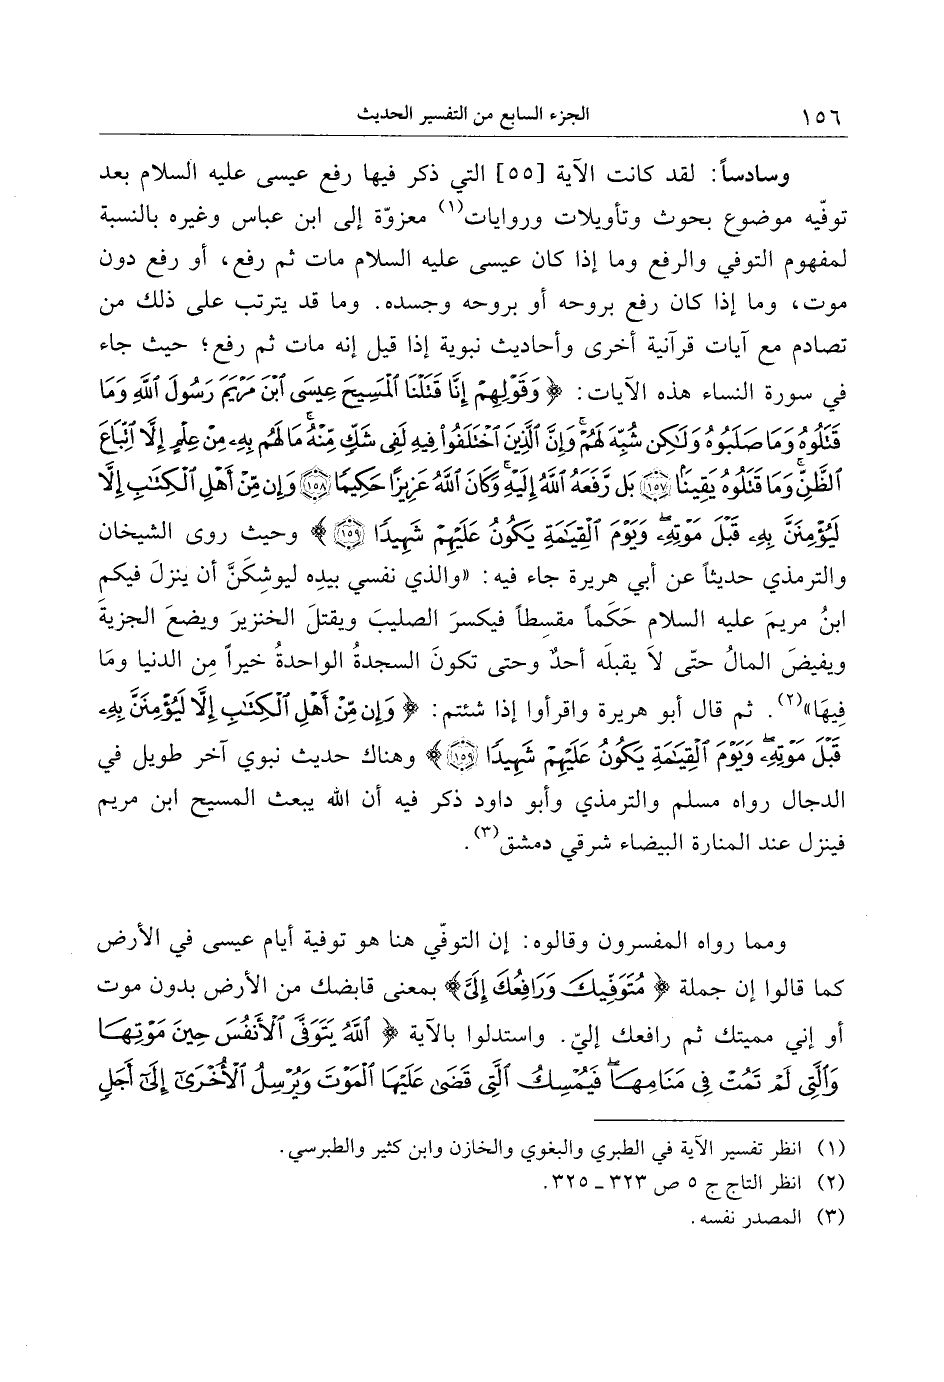 ١٥٦ الجزء السابع من التفسير الحديث
وسادساً: لقد كانت الآية [٥٥] التي ذكر فيها رفع عيسى عليه السلام بعد
توفّيه موضوع بحوث وتأويلات وروايات(١) معزوّة إلى ابن عباس وغيره بالنسبة
لمفهوم التوفي والرفع وما إذا كان عيسى عليه السلام مات ثم رفع، أو رفع دون
موت، وما إذا كان رفع بروحه أو بروحه وجسده. وما قد يترتب على ذلك من
تصادم مع آيات قرآنية أخرى وأحاديث نبوية إذا قيل إنه مات ثم رفع؛ حيث جاء
في سورة النساء هذه الآيات: ﴿ وَقَوْلِهِمْ إِنَّا قَتَلْنَا ٱلْمَسِيحَ عِيسَى ٱبْنَ مَرْيَمَ رَسُولَ ٱللَّهِ وَمَا
قَتَلُوهُ وَمَا صَلَبُوهُ وَلَٰكِن شُبِّهَ لَهُمْ ۚ وَإِنَّ ٱلَّذِينَ ٱخْتَلَفُوا۟ فِيهِ لَفِى شَكٍّ مِّنْهُ ۚ مَا لَهُم بِهِۦ مِنْ عِلْمٍ إِلَّا ٱتِّبَاعَ
ٱلظَّنِّ ۚ وَمَا قَتَلُوهُ يَقِينًۢا ﴿١٥٧﴾ بَل رَّفَعَهُ ٱللَّهُ إِلَيْهِ ۚ وَكَانَ ٱللَّهُ عَزِيزًا حَكِيمًا ﴿١٥٨﴾ وَإِن مِّنْ أَهْلِ ٱلْكِتَٰبِ إِلَّا
لَيُؤْمِنَنَّ بِهِۦ قَبْلَ مَوْتِهِۦ ۖ وَيَوْمَ ٱلْقِيَٰمَةِ يَكُونُ عَلَيْهِمْ شَهِيدًا ﴿١٥٩﴾ ﴾ وحيث روى الشيخان
والترمذي حديثاً عن أبي هريرة جاء فيه: «والذي نفسي بيدِه ليوشكَنَّ أن ينزلَ فيكم
ابنُ مريمَ عليه السلام حَكَماً مقسِطاً فيكسرَ الصليبَ ويقتلَ الخنزيرَ ويضعَ الجزيةَ
ويفيضَ المالُ حتّى لاَ يقبلَه أحدٌ وحتى تكونَ السجدةُ الواحدةُ خيراً مِن الدنيا ومَا
فِيهَا»(٢). ثم قال أبو هريرة واقرأوا إذا شئتم: ﴿ وَإِن مِّنْ أَهْلِ ٱلْكِتَٰبِ إِلَّا لَيُؤْمِنَنَّ بِهِۦ
قَبْلَ مَوْتِهِۦ ۖ وَيَوْمَ ٱلْقِيَٰمَةِ يَكُونُ عَلَيْهِمْ شَهِيدًا ﴿١٥٩﴾ ﴾ وهناك حديث نبوي آخر طويل في
الدجال رواه مسلم والترمذي وأبو داود ذكر فيه أن الله يبعث المسيح ابن مريم
فينزل عند المنارة البيضاء شرقي دمشق(٣).
ومما رواه المفسرون وقالوه: إن التوفّي هنا هو توفية أيام عيسى في الأرض
كما قالوا إن جملة ﴿ مُتَوَفِّيكَ وَرَافِعُكَ إِلَىَّ﴾ بمعنى قابضك من الأرض بدون موت
أو إني مميتك ثم رافعك إليّ. واستدلوا بالآية ﴿ ٱللَّهُ يَتَوَفَّى ٱلْأَنفُسَ حِينَ مَوْتِهَا
وَٱلَّتِى لَمْ تَمُتْ فِى مَنَامِهَا ۖ فَيُمْسِكُ ٱلَّتِى قَضَىٰ عَلَيْهَا ٱلْمَوْتَ وَيُرْسِلُ ٱلْأُخْرَىٰٓ إِلَىٰٓ أَجَلٍ
(١) انظر تفسير الآية في الطبري والبغوي والخازن وابن كثير والطبرسي.
(٢) انظر التاج ج ٥ ص ٣٢٣ ـ ٣٢٥.
(٣) المصدر نفسه.